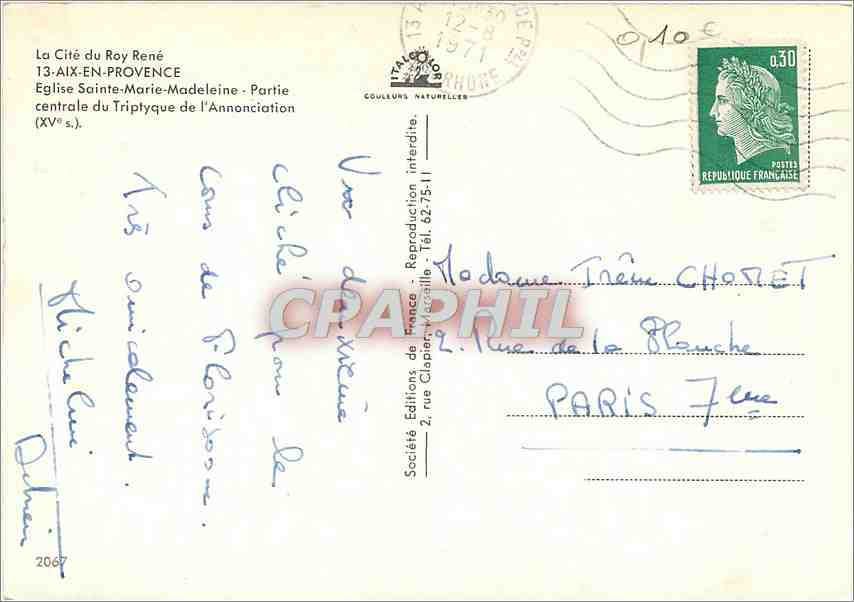 La Cité du Roy René
13-AIX-EN-PROVENCE
Eglise Sainte-Marie-Madeleine - Partie
centrale du Triptyque de l'Annonciation
(XVe s.).
12-8
1971
RHONE
ITALCOLOR
COULEURS NATURELLES
0,10 €
0,30
POSTES
REPUBLIQUE FRANÇAISE
cliché pour le
de
Très amicalement.
Société Editions de France - Reproduction interdite.
2, rue Clapier, Marseille - Tél. 62-75-11
Madame Irène CHOMET
2. Rue de la Planche
PARIS 7ème
CPAPHIL
2067